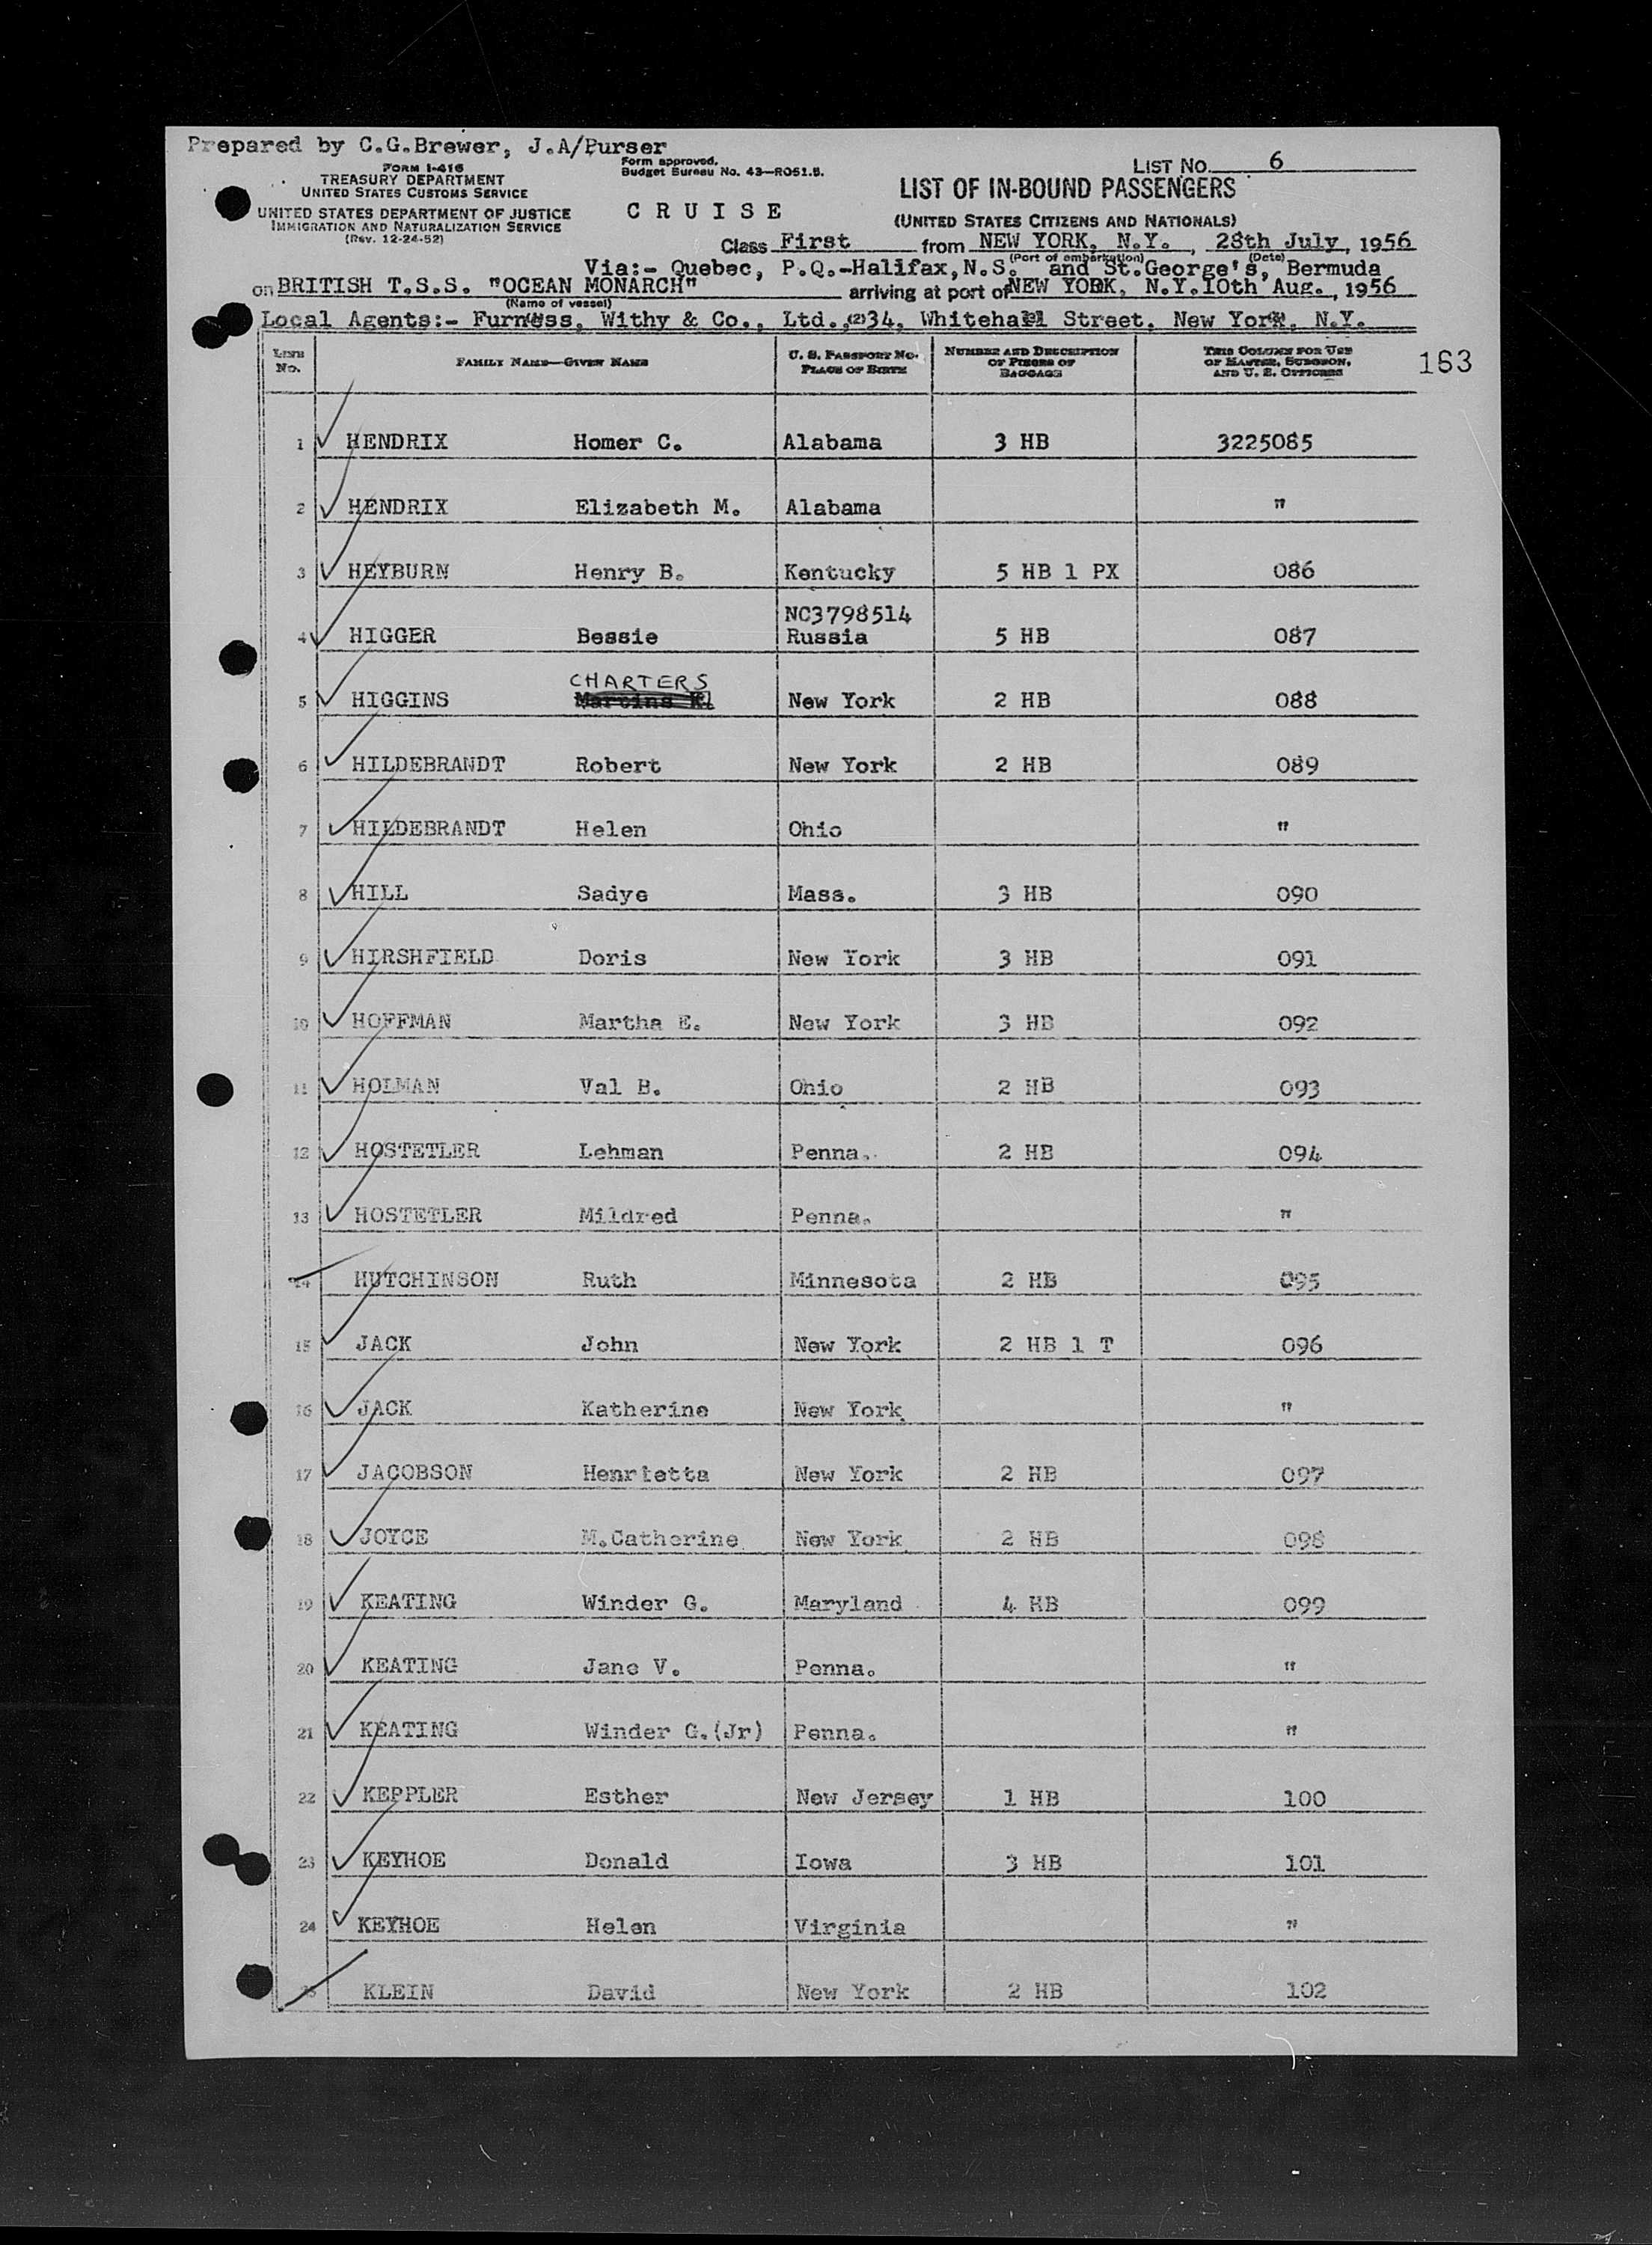 Prepared by C.G.Brewer, J.A/Purser
FORM I-416
TREASURY DEPARTMENT
UNITED STATES CUSTOMS SERVICE
UNITED STATES DEPARTMENT OF JUSTICE
IMMIGRATION AND NATURALIZATION SERVICE
(Rev. 12-24-52)
Form approved.
Budget Bureau No. 43—RO51.5.
CRUISE
LIST NO. 6
LIST OF IN-BOUND PASSENGERS
(UNITED STATES CITIZENS AND NATIONALS)
Class First from NEW YORK, N.Y., 28th July, 1956
(Port of embarkation) (Date)
Via:- Quebec, P.Q.-Halifax, N.S. and St.George's, Bermuda
on BRITISH T.S.S. "OCEAN MONARCH" arriving at port of NEW YORK, N.Y. 10th Aug., 1956
(Name of vessel)
Local Agents:- Furness, Withy & Co., Ltd., (2) 34, Whitehall Street, New York, N.Y.
LINE No. FAMILY NAME—GIVEN NAME U. S. PASSPORT NO. PLACE OF BIRTH NUMBER AND DESCRIPTION OF PIECES OF BAGGAGE THIS COLUMN FOR USE OF MASTER, SURGEON, AND U. S. OFFICERS 163
1 HENDRIX Homer C. Alabama 3 HB 3225085
2 HENDRIX Elizabeth M. Alabama "
3 HEYBURN Henry B. Kentucky 5 HB 1 PX 086
NC3798514
4 HIGGER Bessie Russia 5 HB 087
CHARTERS
5 HIGGINS New York 2 HB 088
6 HILDEBRANDT Robert New York 2 HB 089
7 HILDEBRANDT Helen Ohio "
8 HILL Sadye Mass. 3 HB 090
9 HIRSHFIELD Doris New York 3 HB 091
10 HOFFMAN Martha E. New York 3 HB 092
11 HOLMAN Val B. Ohio 2 HB 093
12 HOSTETLER Lehman Penna. 2 HB 094
13 HOSTETLER Mildred Penna. "
14 HUTCHINSON Ruth Minnesota 2 HB 095
15 JACK John New York 2 HB 1 T 096
16 JACK Katherine New York "
17 JACOBSON Henrietta New York 2 HB 097
18 JOYCE M.Catherine New York 2 HB 098
19 KEATING Winder G. Maryland 4 HB 099
20 KEATING Jane V. Penna. "
21 KEATING Winder G.(Jr) Penna. "
22 KEPPLER Esther New Jersey 1 HB 100
23 KEYHOE Donald Iowa 3 HB 101
24 KEYHOE Helen Virginia "
25 KLEIN David New York 2 HB 102